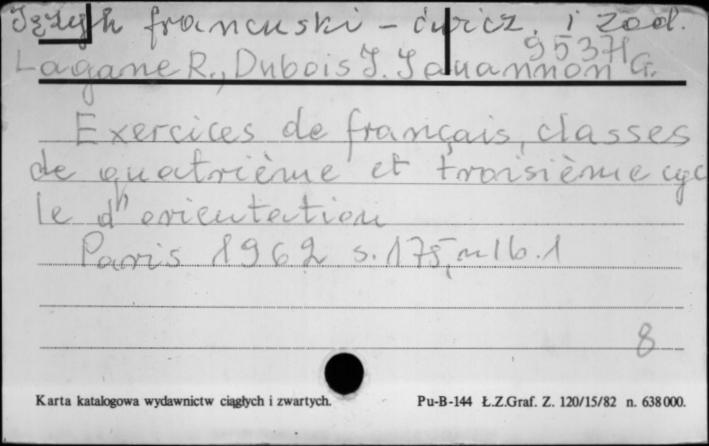 Język francuski - ćwicz. i zad.
95371
Lagane R., Dubois J. Jouannon G.
Exercices de français, classes
de quatrième et troisième cyc
le d'orientation
Paris 1962 s. 175, nlb. 1
8
Karta katalogowa wydawnictw ciągłych i zwartych.
Pu-B-144 Ł.Z.Graf. Z. 120/15/82 n. 638 000.